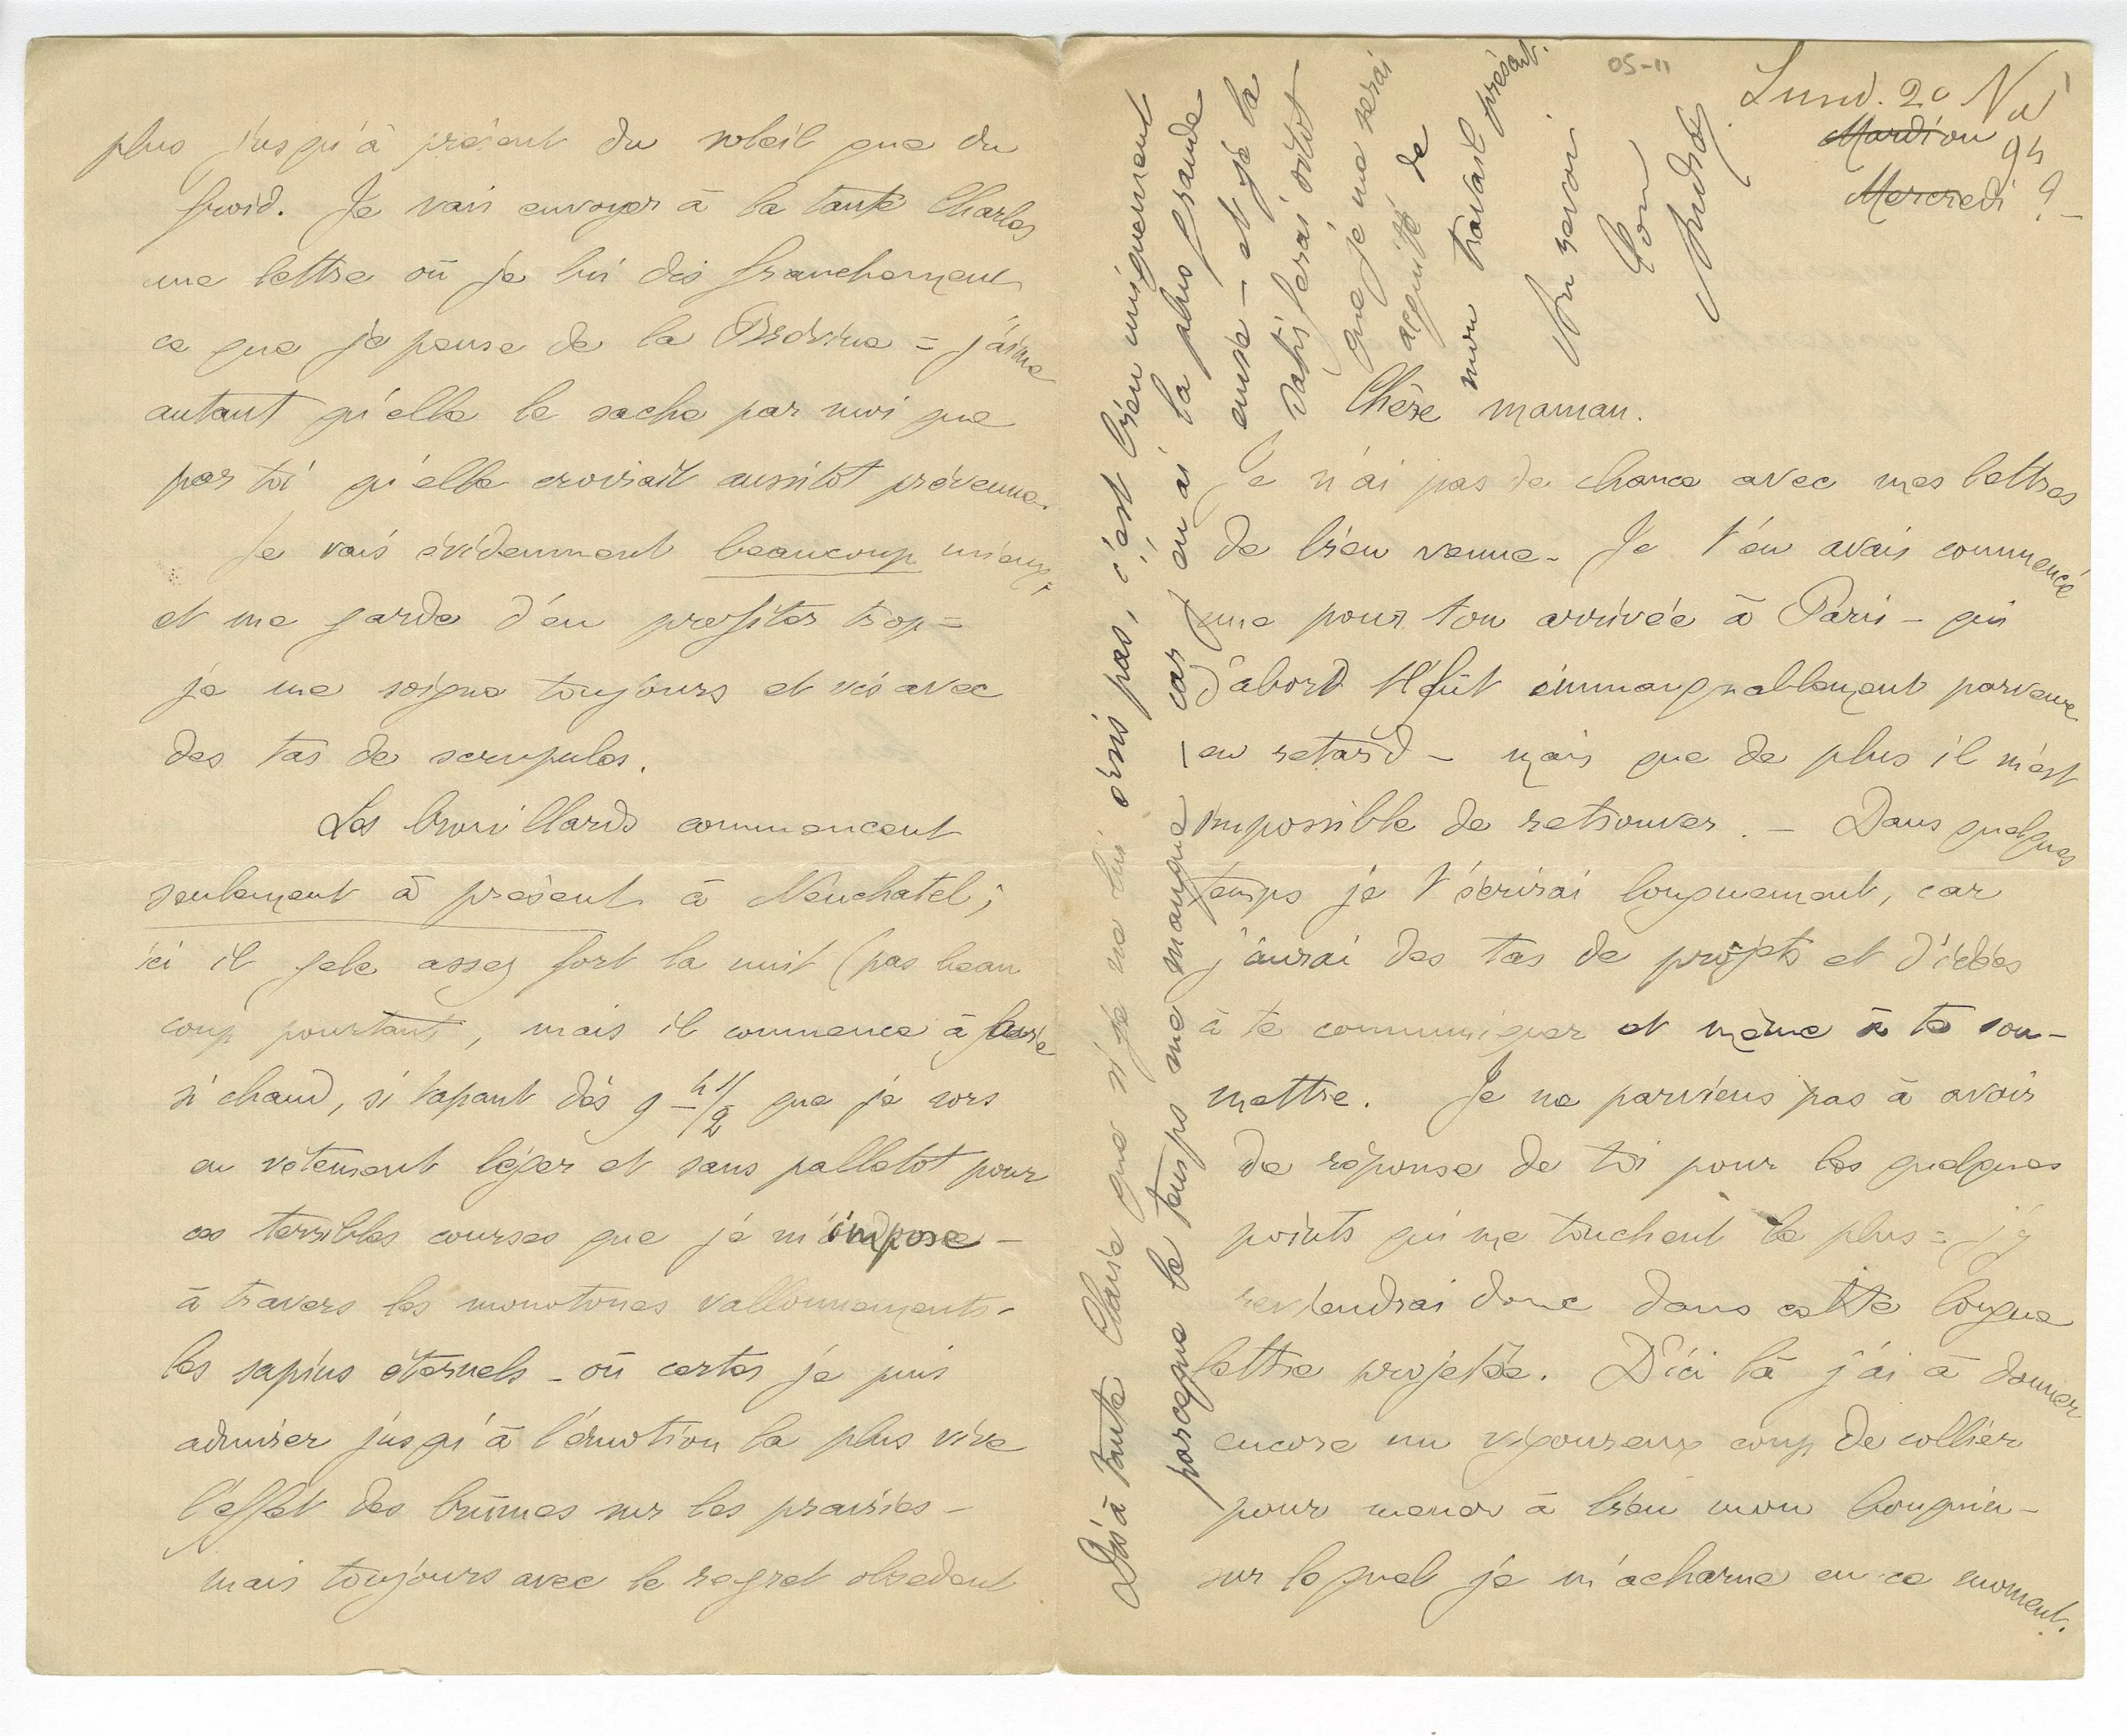 05-11
Lund. 20 Nov
Mardi ou 94
Mercredi ?
Chère maman.
Je n'ai pas de chance avec mes lettres
de bien venue - Je t'en avais commencé
une pour ton arrivée à Paris - qui
d'abord t'fût immanquablement parvenue
en retard - mais que de plus il m'est
impossible de retrouver. - Dans quelques
temps je t'écrirai longuement, car
j'aurai des tas de projets et d'idées
à te communiquer et même à te sou-
mettre. Je ne parviens pas à avoir
de réponse de toi pour les quelques
points qui me touchent le plus = j'y
reviendrai donc dans cette longue
lettre projetée. D'ici là j'ai à donner
encore un vigoureux coup de collier
pour mener à bien mon bouquin -
sur lequel je m'acharne en ce moment.
plus jusqu'à présent du soleil que du
froid. Je vais envoyer à la tante Charles
une lettre où je lui dis franchement
ce que je pense de la Brévine = j'aime
autant qu'elle le sache par moi que
par toi qu'elle croirait aussitôt prévenue.
Je vais évidemment beaucoup mieux,
et me garde d'en profiter trop =
je me soigne toujours et vis avec
des tas de scrupules.
Les brouillards commencent
seulement à présent à Neuchatel;
ici il gele assez fort la nuit (pas beau
coup pourtant, mais il commence à faire
si chaud, si tapant dès 9 h 1/2 que je sors
en vêtement léger et sans palletot pour
ces terribles courses que je m'impose -
à travers les monotones vallonnements -
les sapins éternels - où certes je puis
admirer jusqu'à l'émotion la plus vive
l'effet des brumes sur les prairies -
mais toujours avec le regret obsedant
Dis à tante Claire que si je ne lui écris pas, c'est bien uniquement
parceque le temps me manque - car j'en ai la plus grande
envie - et je la
satisferai sitôt
que je me serai
acquitté de
mon travail présent.
Au revoir
Ton
André